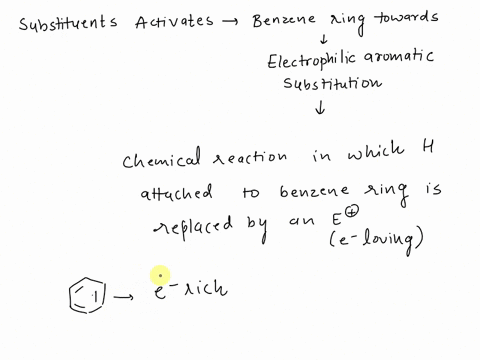 Substituents Activates → Benzene ring towards
↓
Electrophilic aromatic
Substitution
↓
Chemical reaction in which H
attached to benzene ring is
replaced by an E⊕
(e-loving)
→ e⁻-rich